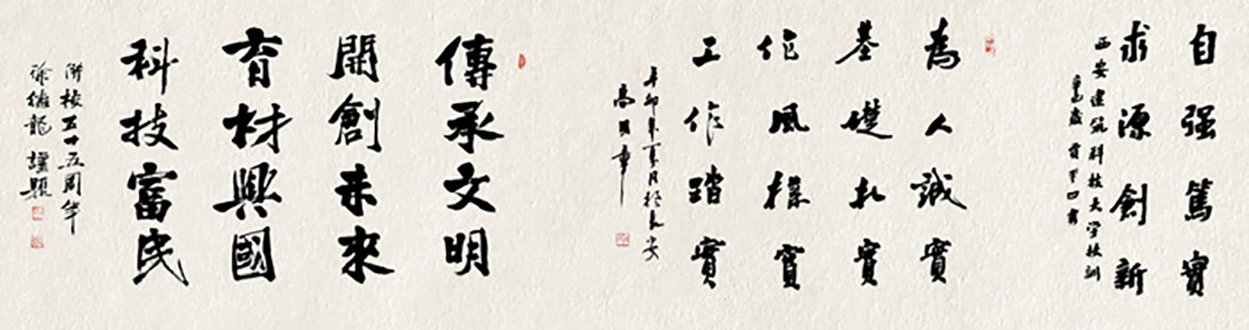 自强篤實
求源創新
西安建筑科技大学校訓
為人誠實
基礎扎實
作風樸實
工作踏實
辛卯年夏月於長安
傳承文明
開創未來
育材興國
科技富民
併校五十五周年
徐德龍 謹題